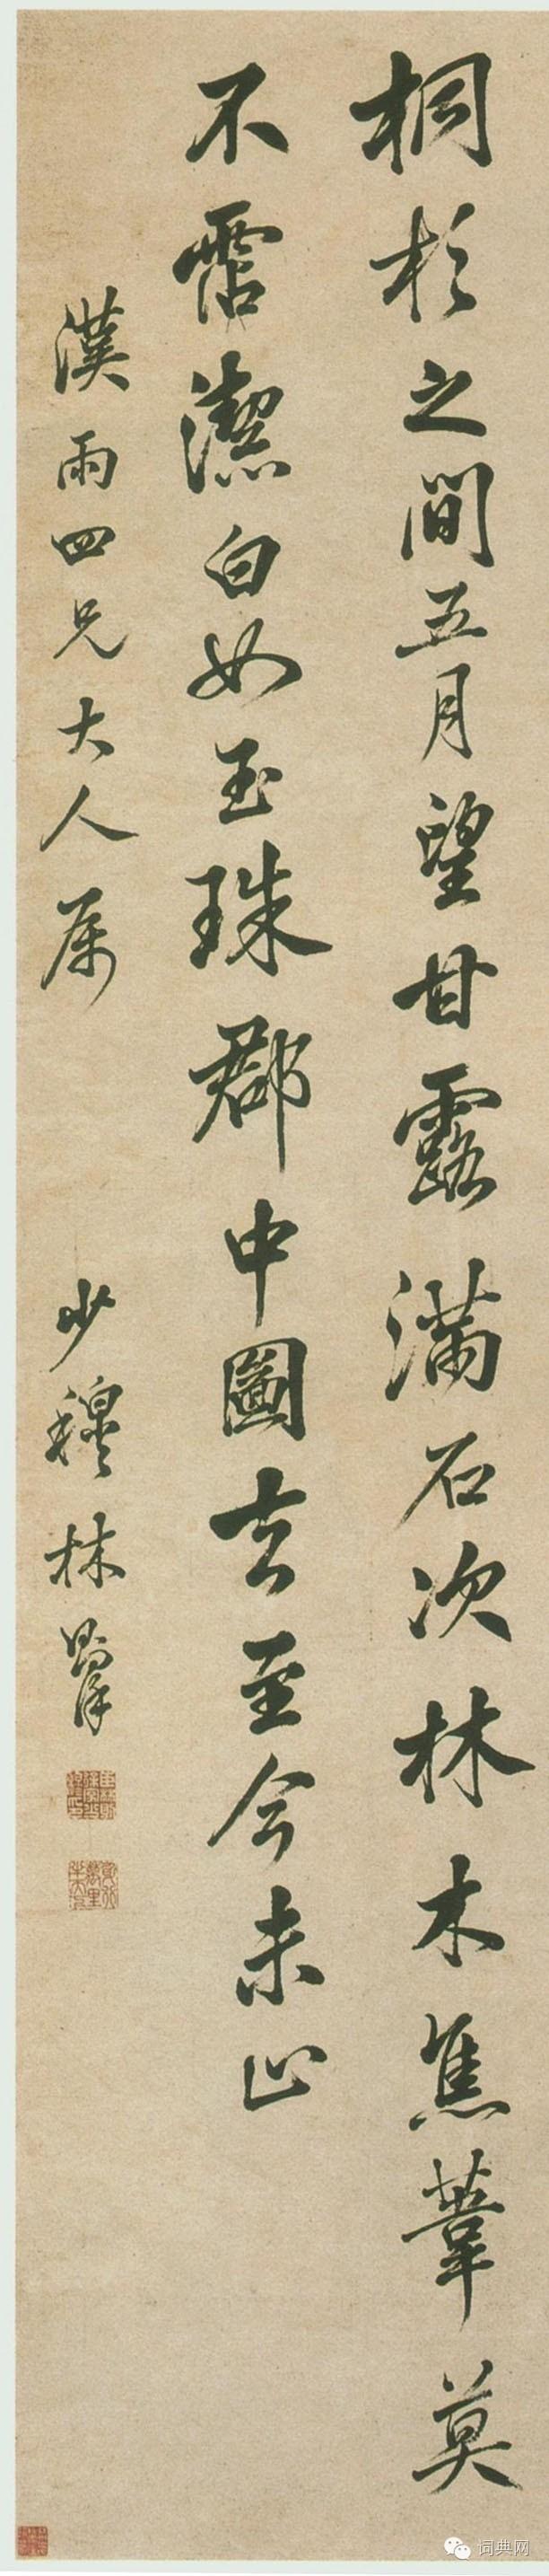 桐杉之間五月望甘露滿石次林木蕉葦莫
不霑潔白如玉珠郡中圖去至今未止
漢雨四兄大人属
少穆林則徐
词典网